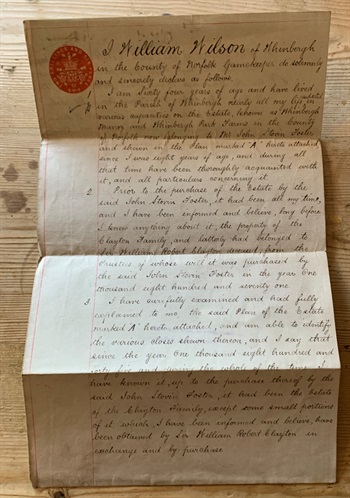 I William Wilson of Whinburgh
in the County of Norfolk Gamekeeper do solemnly
and sincerely declare as follows
1. I am Sixty four years of age and have lived
in the Parish of Whinburgh nearly all my life in
various capacities on the Estate, known as Whinburgh
Manor and Whinburgh Park Farms in the County
of Norfolk now belonging to Mr John Stevn Foster
and shewn in the Plan marked "A" hereto attached
since I was eight years of age, and during all
that time have been thoroughly acquainted with
it, and all particulars concerning it
2. Prior to the purchase of the Estate by the
said John Stevn Foster, it had been all my time,
and I have been informed and believe, long before
I knew anything about it, the property of the
Clayton Family, and latterly had belonged to
Sir William Robert Clayton deceased, from the
Trustees of whose will it was purchased by
the said John Stevn Foster in the year One
thousand eight hundred and seventy one
3. I have carefully examined and had fully
explained to me the said Plan of the Estate
marked "A" hereto attached, and am able to identify
the various closes shewn thereon, and I say that
since the year One thousand eight hundred and
forty five and during the whole of the time I
have known it, up to the purchase thereof by the
said John Stevn Foster, it had been the Estate
of the Clayton Family, except some small portions
of it which, I have been informed and believe, have
been obtained by Sir William Robert Clayton in
exchange and by purchase